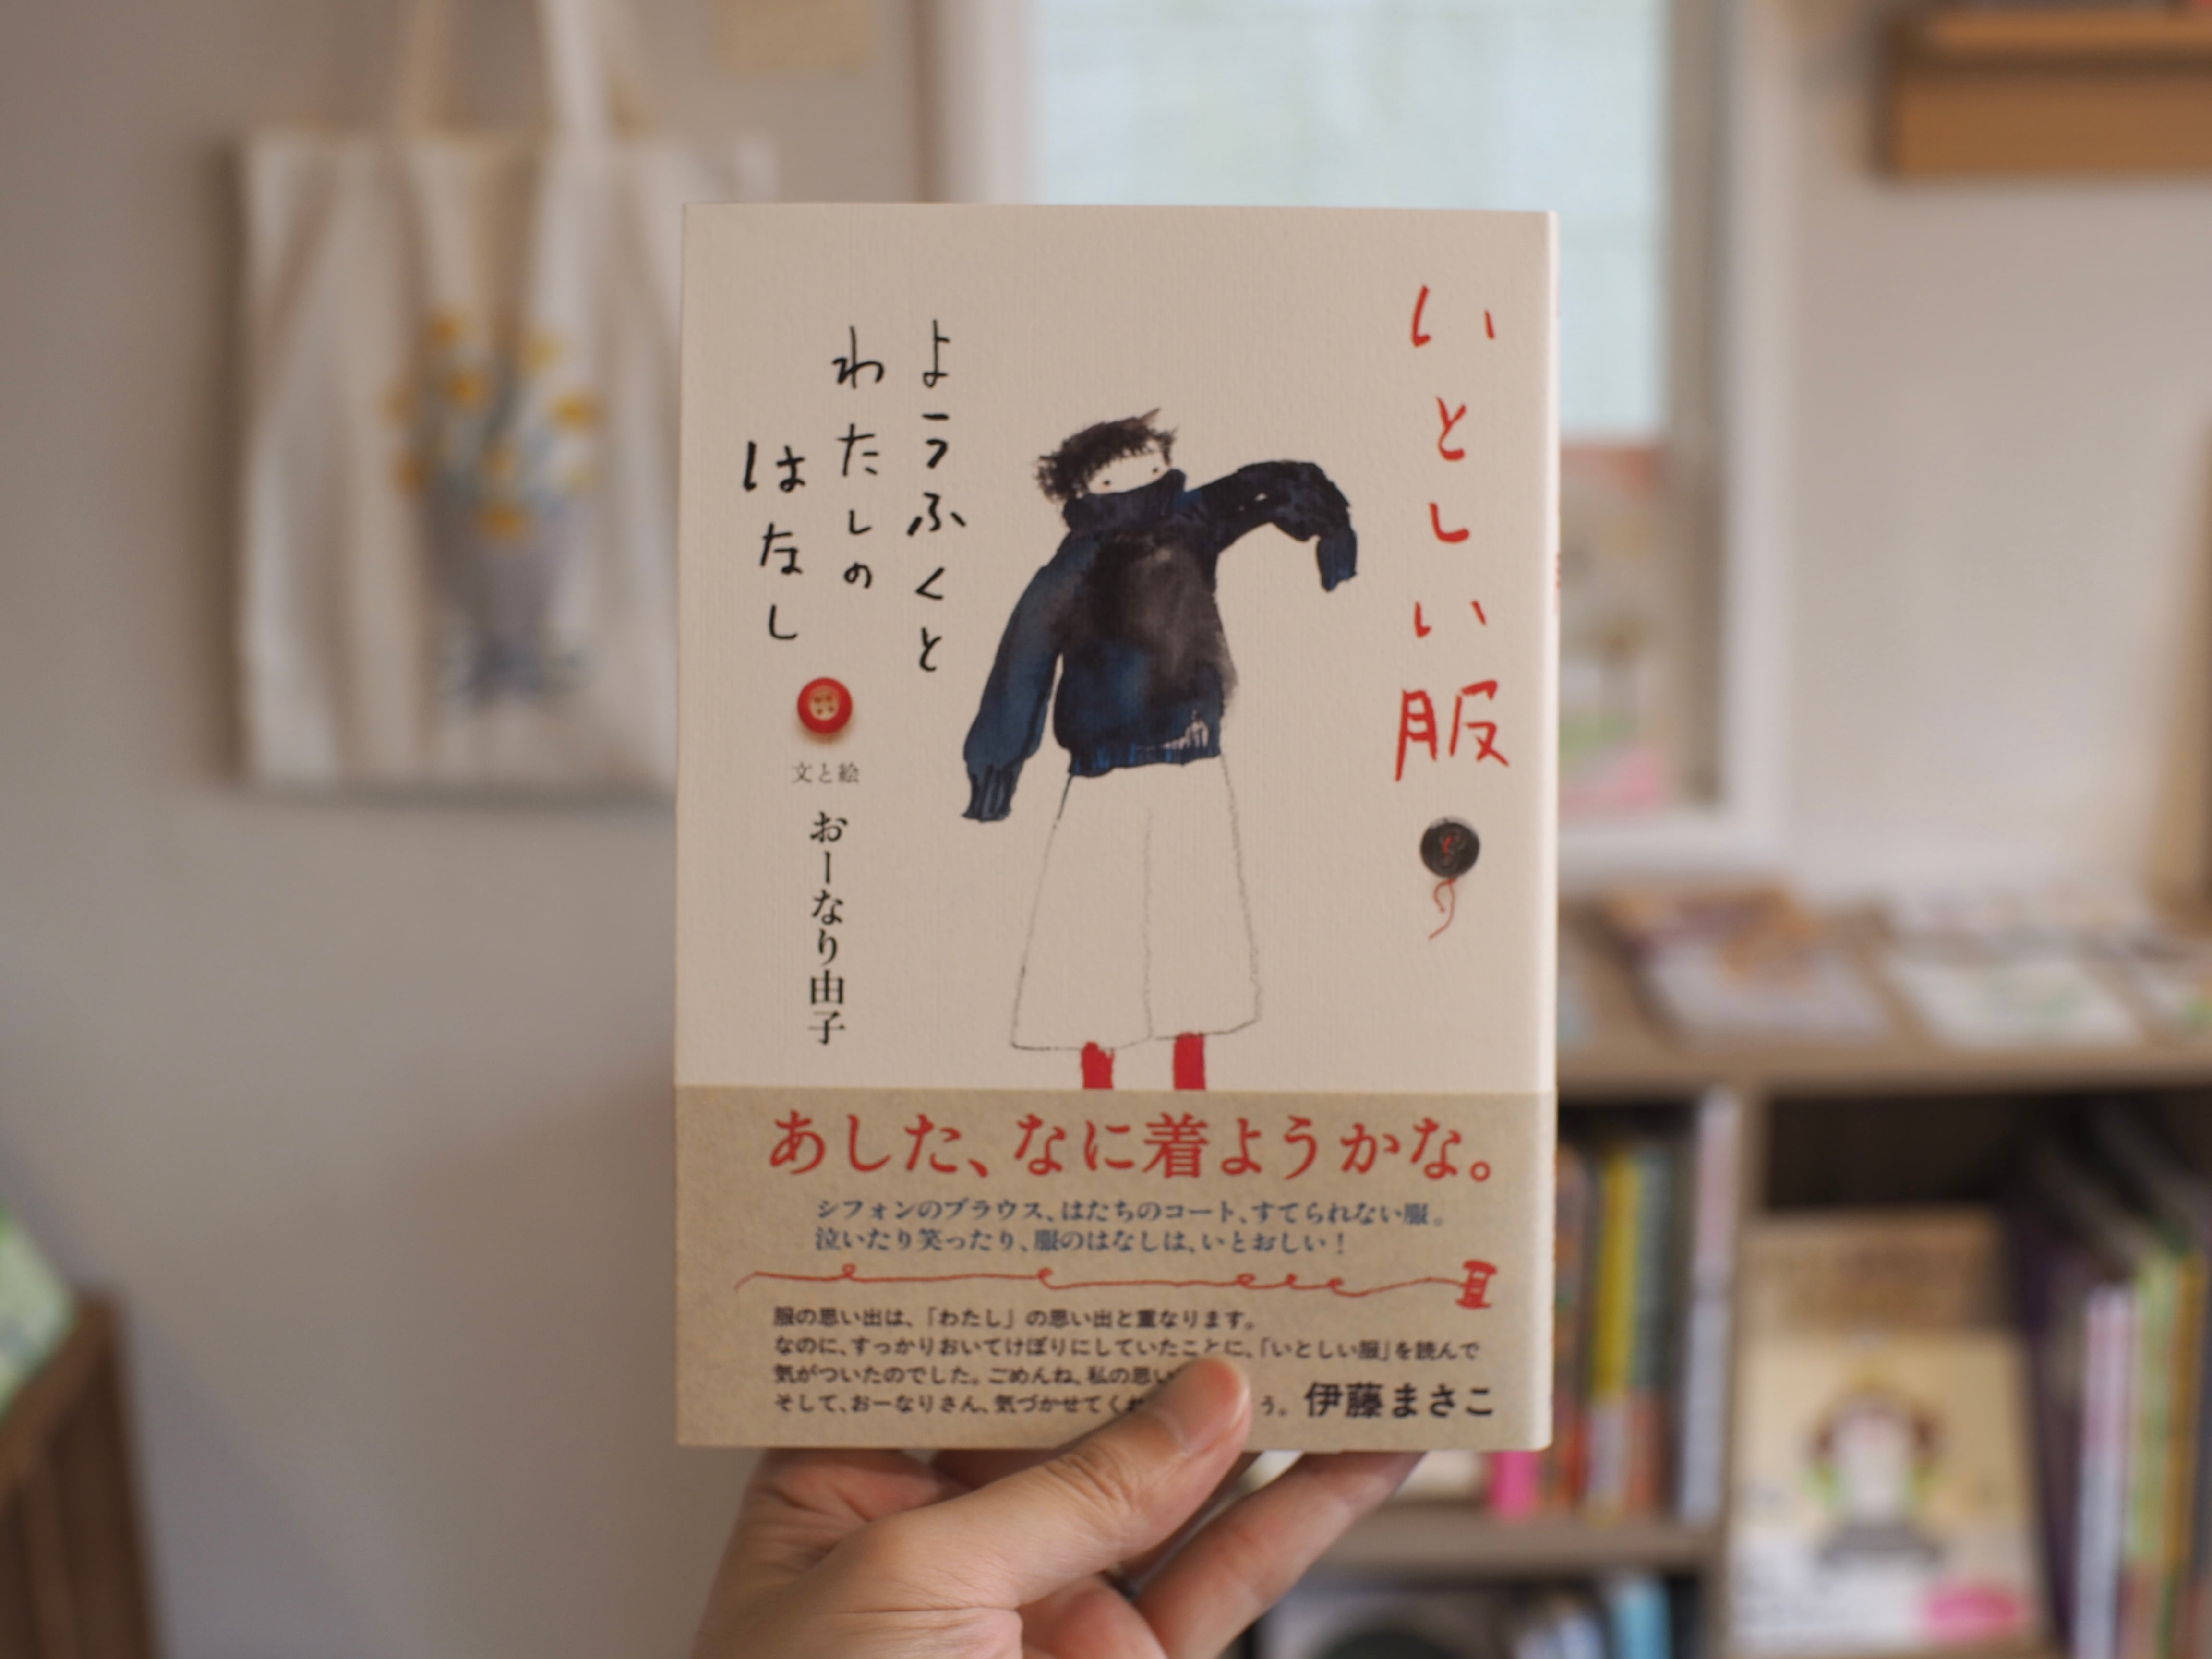 いとしい服
ようふくと
わたしの
はなし
文と絵
おーなり由子
あした、なに着ようかな。
シフォンのブラウス、はたちのコート、すてられない服。
泣いたり笑ったり、服のはなしは、いとおしい！
服の思い出は、「わたし」の思い出と重なります。
なのに、すっかりおいてけぼりにしていたことに、「いとしい服」を読んで
気がついたのでした。ごめんね、私の思い
そして、おーなりさん、気づかせてくれ う。
伊藤まさこ